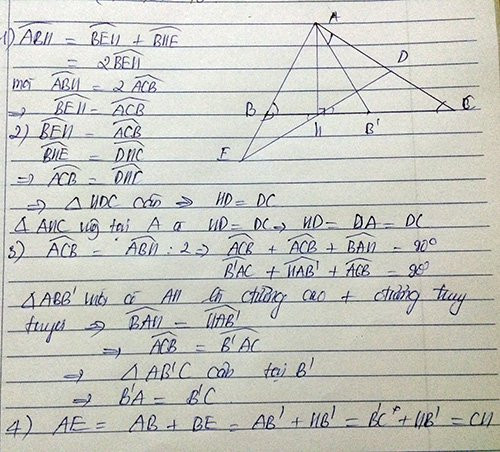 1) ABH = BEH + BHE
= 2BEH
mà ABH = 2 ACB
⇒ BEH = ACB
2) BEH = ACB
BHE = DHC
⇒ ACB = DHC
⇒ △ HDC cân ⇒ HD = DC
△ AHC vg tại A có HD = DC ⇒ HD = DA = DC
3) ACB = ABH : 2 ⇒ ACB + ACB + BAH = 90°
B'AC + HAB' + ACB = 90°
△ABB' có AH là đường cao + đường trung
tuyến ⇒ BAH = HAB'
⇒ ACB = B'AC
⇒ △ AB'C cân tại B'
⇒ B'A = B'C
4) AE = AB + BE = AB' + HB' = B'C + HB' = CH
A
D
B
H
B'
C
E